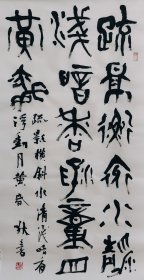 疏影衡斜水清
淺暗香浮動月
黄昏
疏影横斜水清淺暗香
浮動月黄昏